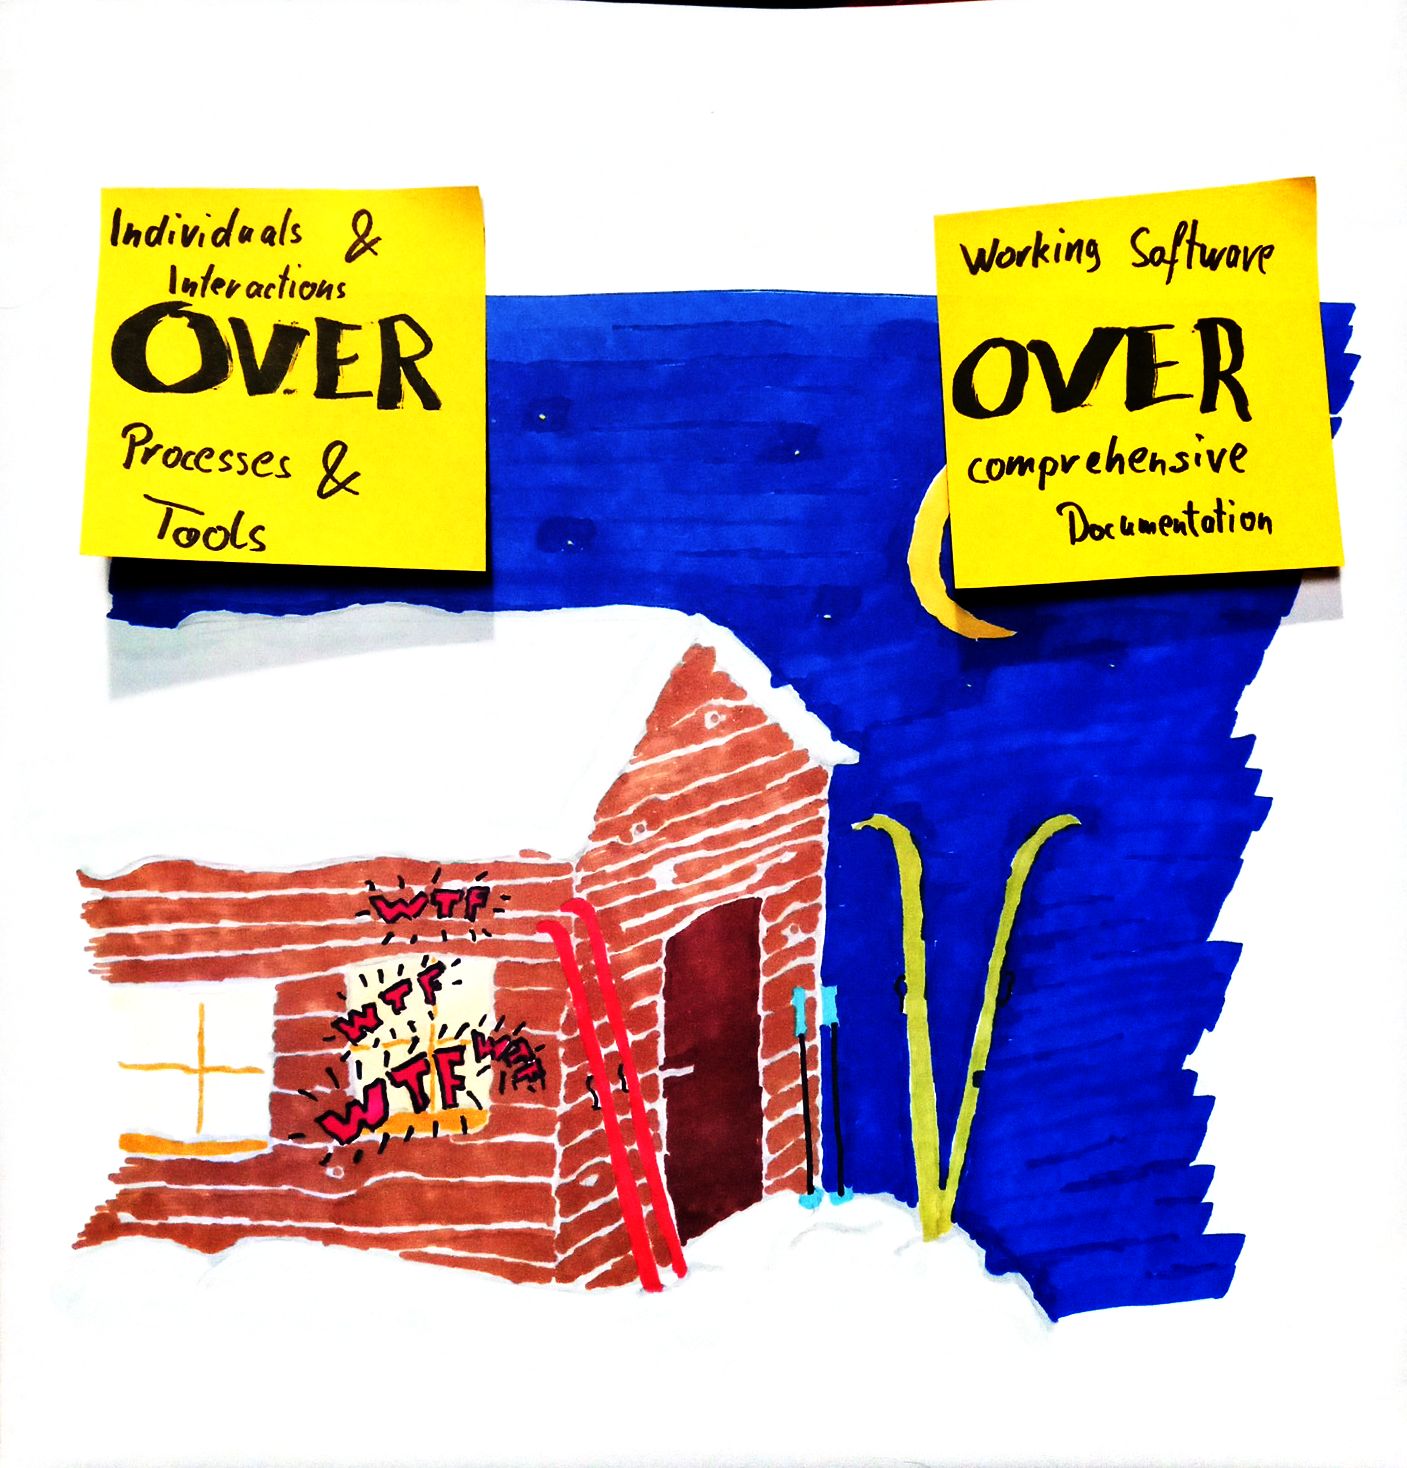 Individuals &
Interactions
OVER
Processes &
Tools
Working Software
OVER
comprehensive
Documentation
WTF
WTF
WTF
WTF